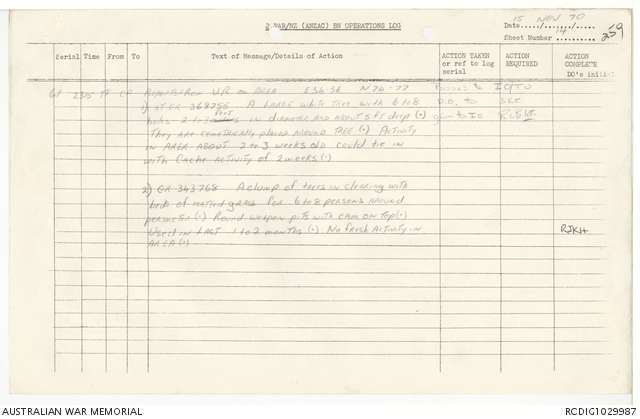 2 RAR/NZ (ANZAC) BN OPERATIONS LOG
Date 15 NOV 70
Sheet Number 14
259
Serial Time From To Text of Message/Details of Action ACTION TAKEN or ref to log serial ACTION REQUIRED ACTION COMPLETE DO's initials
61 2315 CP on AREA E36-38 N76-77 Passed to
1) AT GR 368755 A LARGE white TREE with 6 to 8 D.O. to
holes 2 to 3 FEET in diameter and about 5 ft deep (.) to IO
They are placed around TREE (.) Activity
in AREA ABOUT 2 to 3 weeks old could tie in
with Cache activity of 2 weeks (.)
2) GR 343768 A clump of trees in clearing with
beds of matted grass for 6 to 8 persons around
perimeter (.) Round weapon pits with cam on top (.)
Used in LAST 1 to 2 months (.) No fresh Activity in RJKH
AREA (.)
AUSTRALIAN WAR MEMORIAL
RCDIG1029987